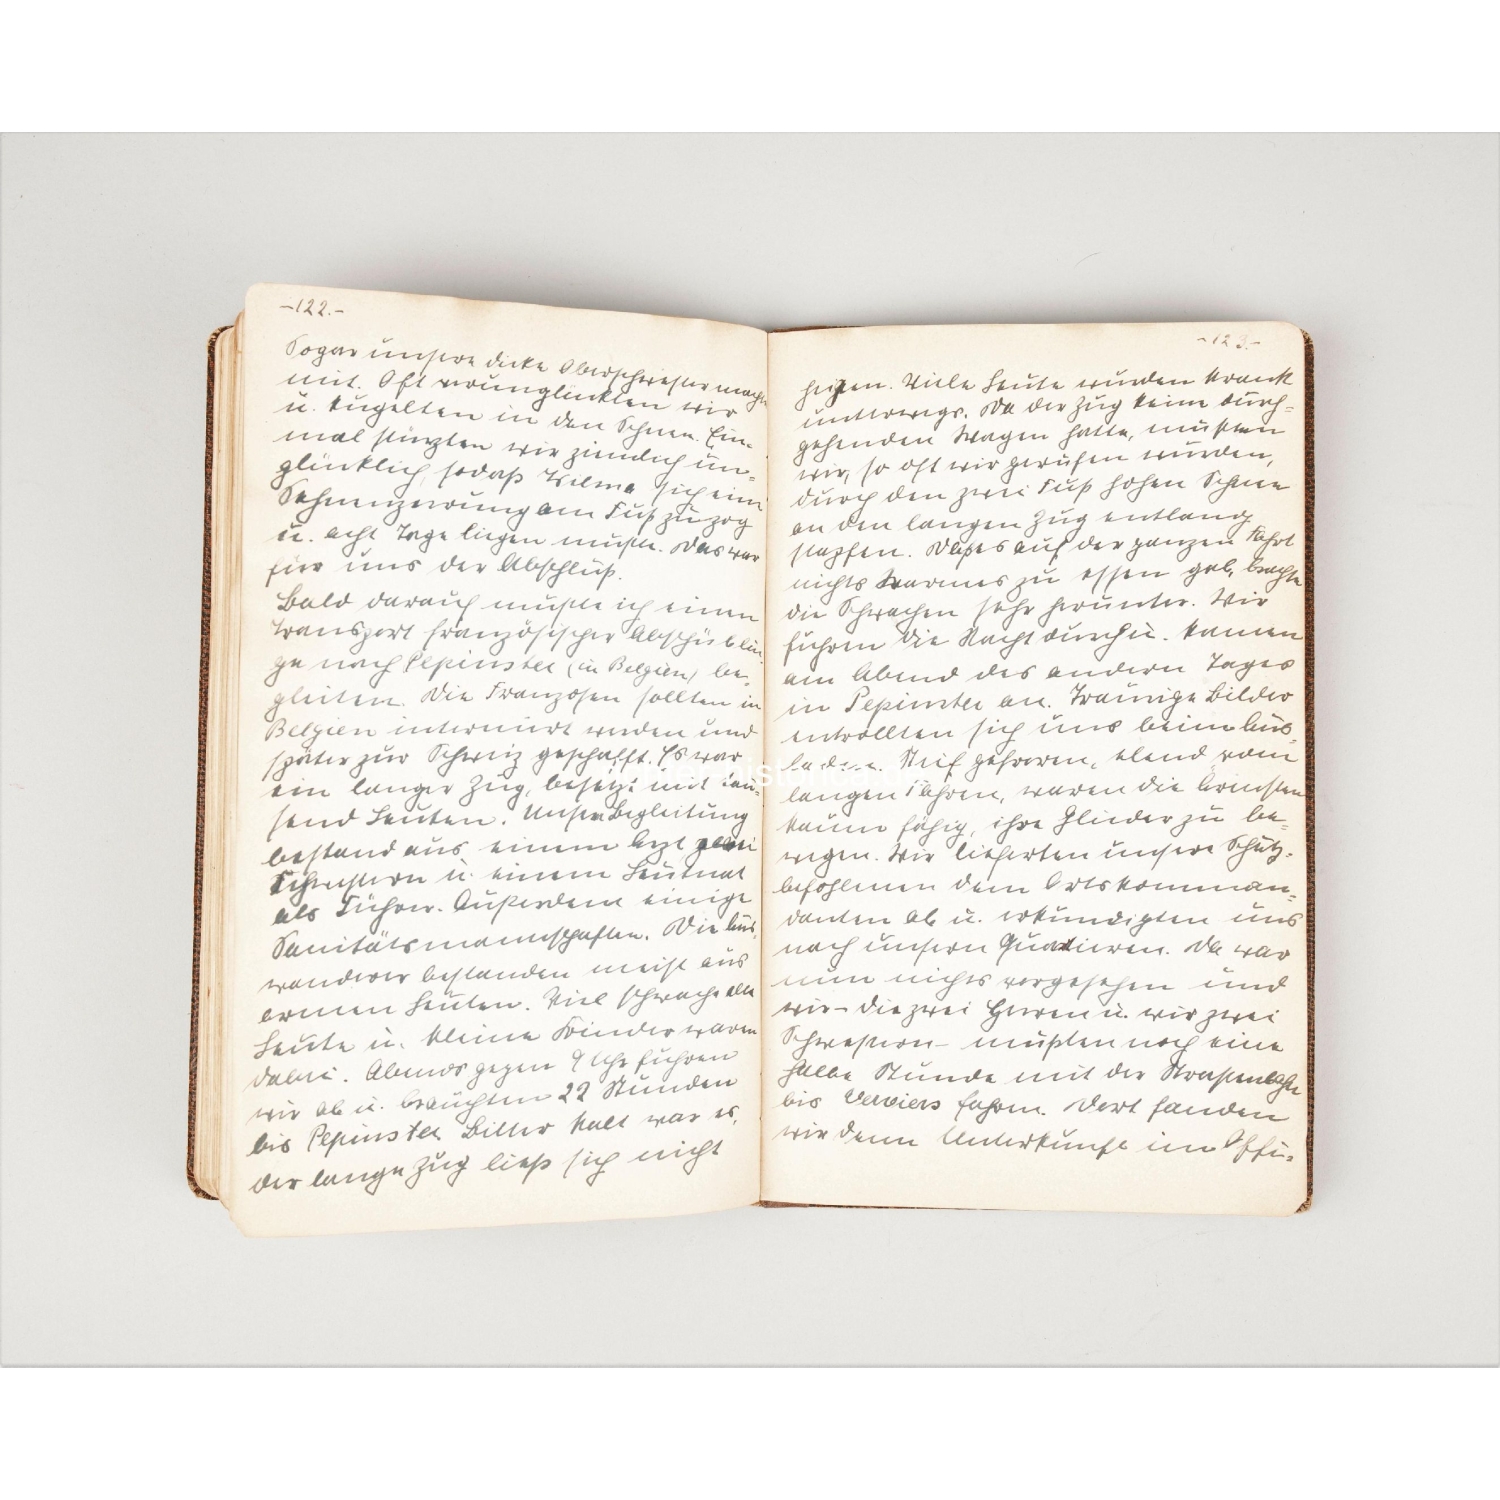 -122.-
Sogar unsere dicke Oberschwester machte
mit. Oft verunglückten wir
u. kugelten in den Schnee. Ein-
mal stürzten wir ziemlich un-
glücklich, sodaß Wilma sich eine
Sehnenzerrung am Fuß zuzog
u. acht Tage liegen mußte. Das war
für uns der Abschluß.
Bald darauf mußte ich einen
Transport französischer Abschüblin-
ge nach Pepinster (in Belgien) be-
gleiten. Die Franzosen sollten in
Belgien interniert werden und
später zur Schweiz geschafft. Es war
ein langer Zug, besetzt mit tau-
send Leuten. Unsere Begleitung
bestand aus einem Arzt zwei
Schwestern u. einem Leutnat
als Führer. Außerdem einige
Sanitätsmannschaften. Die Aus-
wanderer bestanden meist aus
armen Leuten. Viel schwache alte
Leute u. kleine Kinder waren
dabei. Abends gegen 9 Uhr fuhren
wir ab u. brauchten 22 Stunden
bis Pepinster. Bitter kalt war es,
der lange Zug ließ sich nicht
-123.-
heizen. Viele Leute wurden krank
unterwegs. Da der Zug keine durch-
gehenden Wagen hatte, mußten
wir, so oft wir gerufen wurden,
durch den zwei Fuß hohen Schnee
an den langen Zug entlang
stapfen. Daß es auf der ganzen Fahrt
nichts Warmes zu essen gab, brachte
die Schwachen sehr herunter. Wir
fuhren die Nacht durch u. kamen
am Abend des andern Tages
in Pepinster an. Traurige Bilder
entrollten sich uns beim Aus-
laden. Steif gefroren, elend vom
langen Fahren, waren die Ärmsten
kaum fähig, ihre Glieder zu be-
wegen. Wir lieferten unsere Schutz-
befohlenen dem Ortskomman-
danten ab u. erkundigten uns
nach unsern Quartieren. Da war
nun nichts vorgesehen und
wir - die zwei Herren u. wir zwei
Schwestern - mußten noch eine
halbe Stunde mit der Straßenbahn
bis Verviers fahren. Dort fanden
wir denn Unterkunft im Offi-